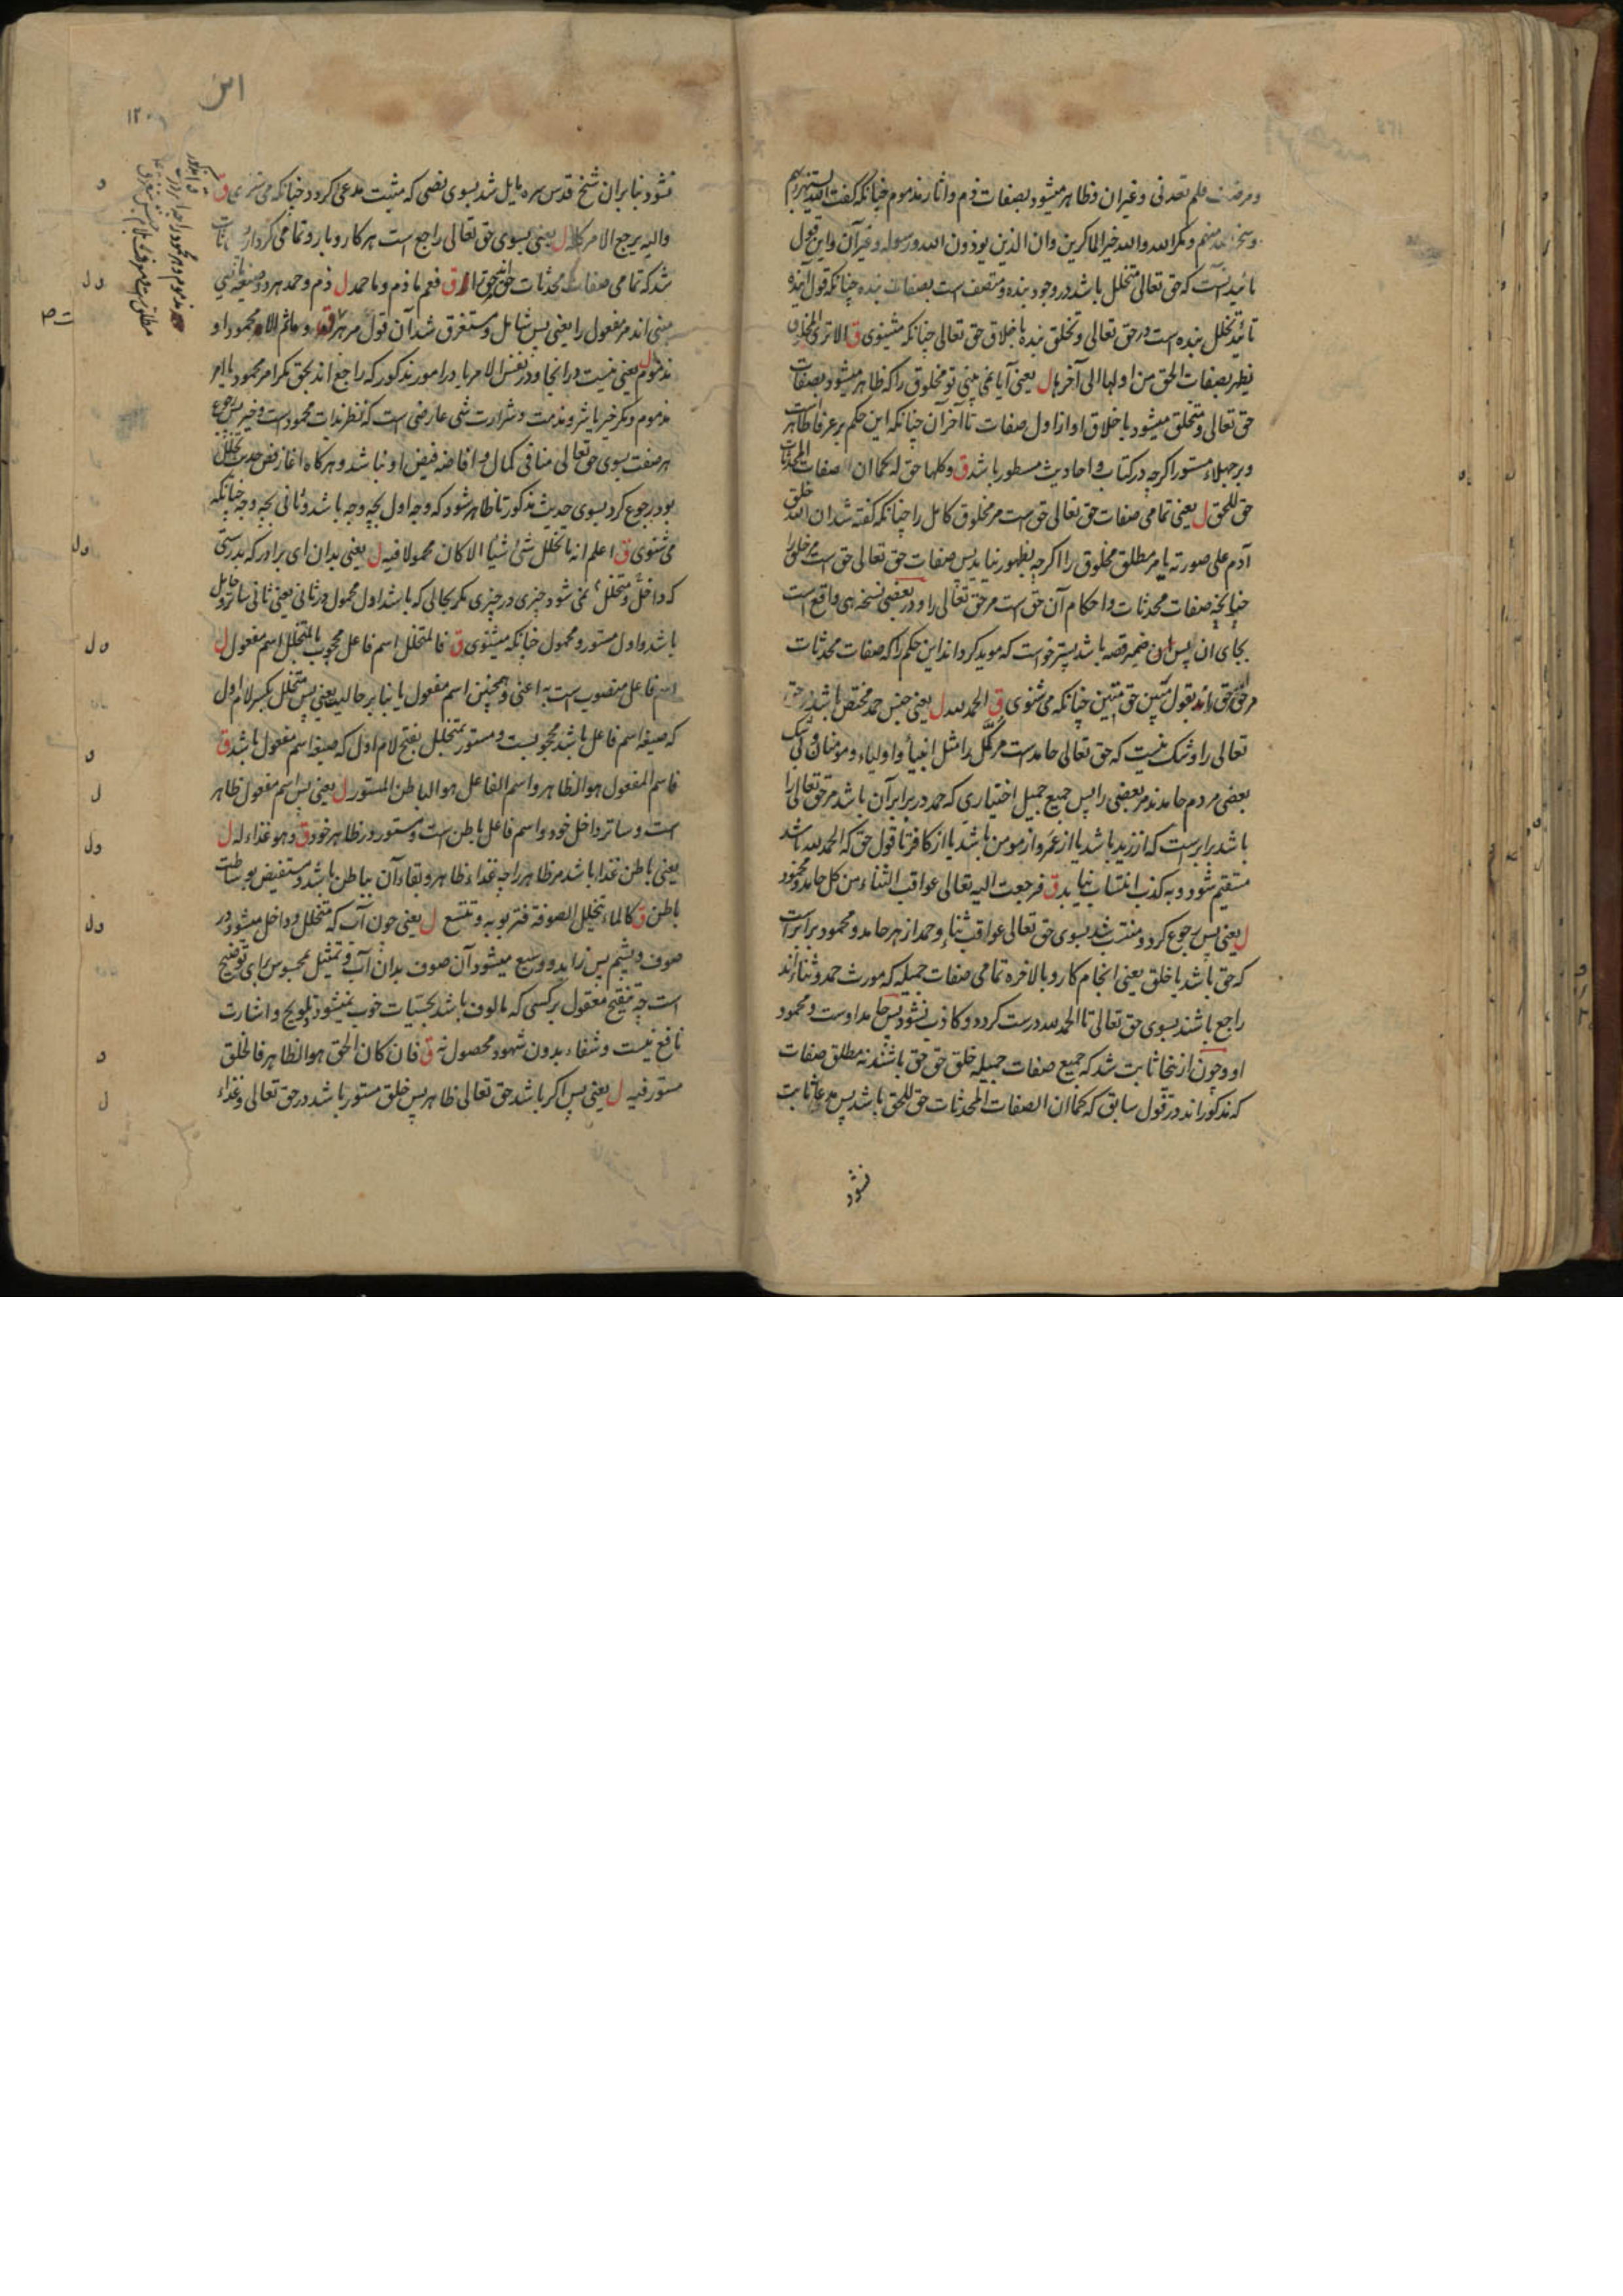 ومرضت فلم تعدنی وغیران وظاهر میشود بصفات ذم واثار مذموم چنانکه گفت الله یستهزئ بهم
وسخر الله منهم ومکر الله والله خیر الماکرین وان الذین یوذون الله ورسوله وغیر آن واین قول
تائید آنست که حق تعالی متخلل باشد در وجود بنده ومتصف است بصفات بنده چنانکه قول آینده
تائید تخلل بنده است در حق تعالی وتخلق بنده باخلاق حق تعالی چنانکه میشنوی ق الا تری المخلوق
یظهر بصفات الحق من اولها الی آخرها ل یعنی آیا نمی بینی تو مخلوق را که ظاهر میشود بصفات
حق تعالی ومتخلق میشود باخلاق او از اول صفات تا آخر آن چنانکه این حکم بر عرفا ظاهر است
وبر جهلاء مستور اگرچه در کتاب واحادیث مسطور باشد ق وکلها حق له کما ان صفات المحدثات
حق للحق ل یعنی تمامی صفات حق تعالی حق است مر مخلوق کامل را چنانکه گفته شد ان الله خلق
آدم علی صورته یا مر مطلق مخلوق را اگرچه بظهور نیاید پس صفات حق تعالی حق است مر خلق را
چنانچه صفات محدثات واحکام آن حق است مر حق تعالی را ودر بعضی نسخه هی واقع است
بجای ان پس ان ضمیر قصه باشد پستر خواست که موید گرداند این حکم را که صفات محدثات
مر حق را حق اند بقول متین حق متین چنانکه می شنوی ق الحمد لله ل یعنی جنس حمد مختص باشد مر حق
تعالی را وشک نیست که حق تعالی حامد است مر کمل را مثل انبیا واولیاء ومومنان وبی شک
بعضی مردم حامدند مر بعضی را پس جمیع جمیل اختیاری که حمد در برابر آن باشد مر حق تعالی را
باشد برابر است که از زید باشد یا از عمر واز مومن باشد یا از کافر تا قول حق که الحمد لله باشد
مستقیم شود وبه کذب انتساب نیابد ق فرجعت الیه تعالی عواقب الثناء من کل حامد ومحمود
ل یعنی پس رجوع کرد ومنتسب شد بسوی حق تعالی عواقب ثناء وحمد از هر حامد ومحمود برابر است
که حق باشد یا خلق یعنی انجام کار وبالاخره تمامی صفات جمیله که مورث حمد وثناء اند
راجع باشند بسوی حق تعالی تا الحمد لله درست گردد وکاذب نشود پس حامد اوست ومحمود
او وچون از ینجا ثابت شد که جمیع صفات جمیله خلق حق حق باشند نه مطلق صفات
که مذکور اند در قول سابق که کما ان الصفات المحدثات حق للحق باشد پس مدعا ثابت
نشود
۱۲۰
نشود بنابر ان شیخ قدس سره مایل شد بسوی نصی که مثبت مدعی گردد چنانکه می شنوی ق
والیه یرجع الامر کله ل یعنی بسوی حق تعالی راجع است هر کار وبار وتمامی کردار
شد که تمامی صفات محدثات حق اند حق را ق فعم ما ذم وما حمد ل ذم وحمد هر دو صیغه
مبنی اند مر مفعول را یعنی پس شامل ومستغرق شد آن قول مر هر ق وما ثم الا محمود او
مذموم ل یعنی نیست در انجا ودر نفس الامر یا در امور مذکور که راجع اند بحق مگر امر محمود یا امر
مذموم ومگر خیر یا شر ومذمت وشرارت شی عارضی است که نظر بذات محمود است وخیر پس رجوع
هر صفت بسوی حق تعالی منافی کمال وافاضه فیض او نباشد وهرگاه اغاز فص حدیث تخلل
بود رجوع کرد بسوی حدیث مذکور تا ظاهر شود که وجه اول بچه وجه باشد وثانی بچه وجه چنانکه
می شنوی ق اعلم انه ما تخلل شئ شیئا الا کان محمولا فیه ل یعنی بدان ای برادر که بدرستی
که داخل ومتخلل نمی شود چیزی در چیزی مگر بحالی که باشد اول محمول در ثانی یعنی ثانی ساتر وحایل
باشد واول مستور ومحمول چنانکه میشنوی ق فالمتخلل اسم فاعل محجوب بالمتخلل اسم مفعول ل
اسم فاعل منصوب است به اعنی وهمچنین اسم مفعول یا بنابر حالیه یعنی پس متخلل بکسر لام اول
که صیغه اسم فاعل باشد محجوبست ومستور بمتخلل بفتح لام اول که صیغه اسم مفعول باشد ق
فاسم المفعول هو الظاهر واسم الفاعل هو الباطن المستور ل یعنی پس اسم مفعول ظاهر
است وساتر داخل خود واسم فاعل باطن است ومستور در ظاهر خود ق وهو غذاء له ل
یعنی باطن غذا باشد مر ظاهر را چه غذاء ظاهر وبقاء آن بباطن باشد ومستفیض بوساطت
باطن ق کالماء یتخلل الصوفة فتربو به وتتسع ل یعنی چون آب که متخلل وداخل میشود در
صوف وپشم پس زاید ووسیع میشود آن صوف بدان آب وتمثیل بمحسوس برای توضیح
است چه تنقیح معقول بر کسی که مالوف باشد بحسیات خوب نمیشود وتلویح واشارت
نافع نیست وشفاء بدون شهود محصول نه ق فان کان الحق هو الظاهر فالخلق
مستور فیه ل یعنی پس اگر باشد حق تعالی ظاهر پس خلق مستور باشد در حق تعالی وغذاء